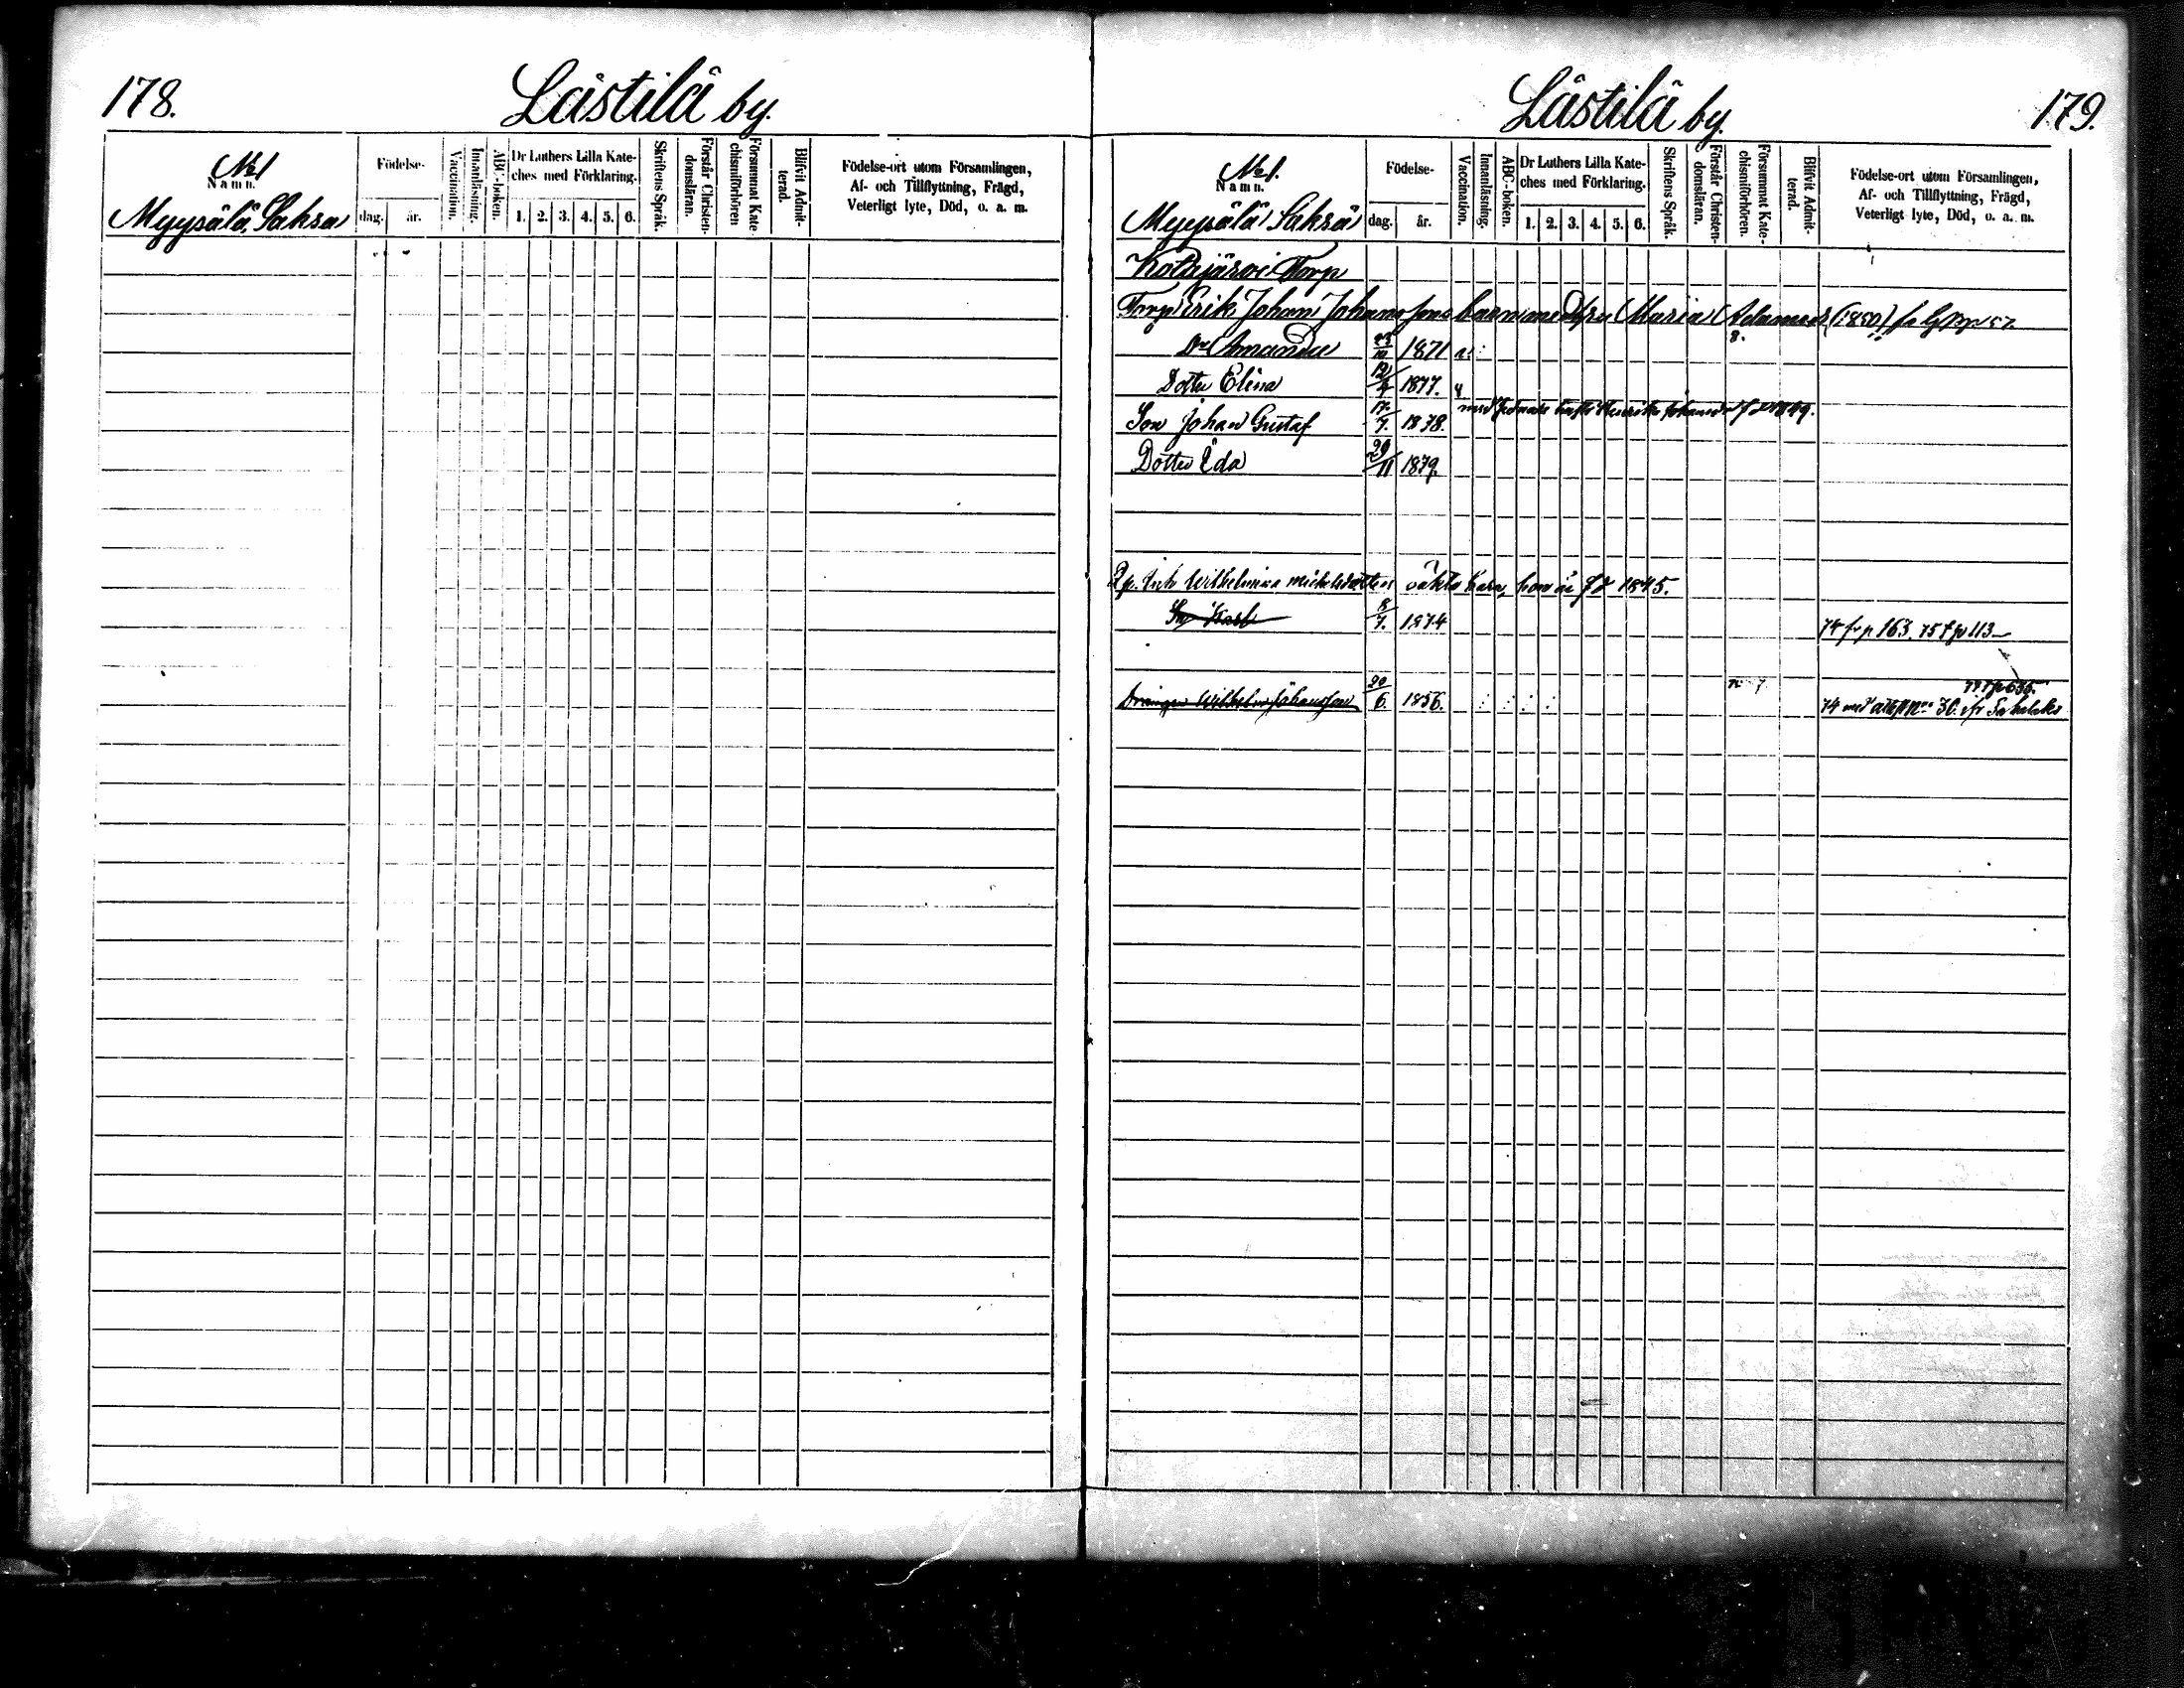 178.
Lästilä by.
№1
Namn.
Myysälä, Saksa
Födelse-
dag. år.
Vaccination.
Innanläsning.
ABC-boken.
Dr Luthers Lilla Kate-
ches med Förklaring.
1. 2. 3. 4. 5. 6.
Skriftens Språk.
Förstår Christen-
domsläran.
Försummat Kate-
chismiförhören
Blifvit Admit-
terad.
Födelse-ort utom Församlingen,
Af- och Tillflyttning, Frägd,
Veterligt lyte, Död, o. a. m.
Lästilä by.
179.
№1.
Namn.
Myysälä, Saksa
Födelse-
dag. år.
Vaccination.
Innanläsning.
ABC-boken.
Dr Luthers Lilla Kate-
ches med Förklaring.
1. 2. 3. 4. 5. 6.
Skriftens Språk.
Förstår Christen-
domsläran.
Försummat Kate-
chismiförhören.
Blifvit Admit-
terad.
Födelse-ort utom Församlingen,
Af- och Tillflyttning, Frägd,
Veterligt lyte, Död, o. a. m.
Torp
Torp Erik Johan Johanssons barn med Maria Adamsd (1850)
8.
Dr Amanda 1871
Dotter Elina 12/4 1877.
med Johansdr 1849.
Son Johan Gustaf 17/7. 1878.
Dotter Eda 29/11 1879.
Wilhelmina Mickelsdotters oäkta barn, hon är fd 1845.
Karl 8/7. 1874 74 fr p 163. 75 t p 113
Drängen Wilhelm Johansson 20/6. 1856. 74 med attest No 30. ifr